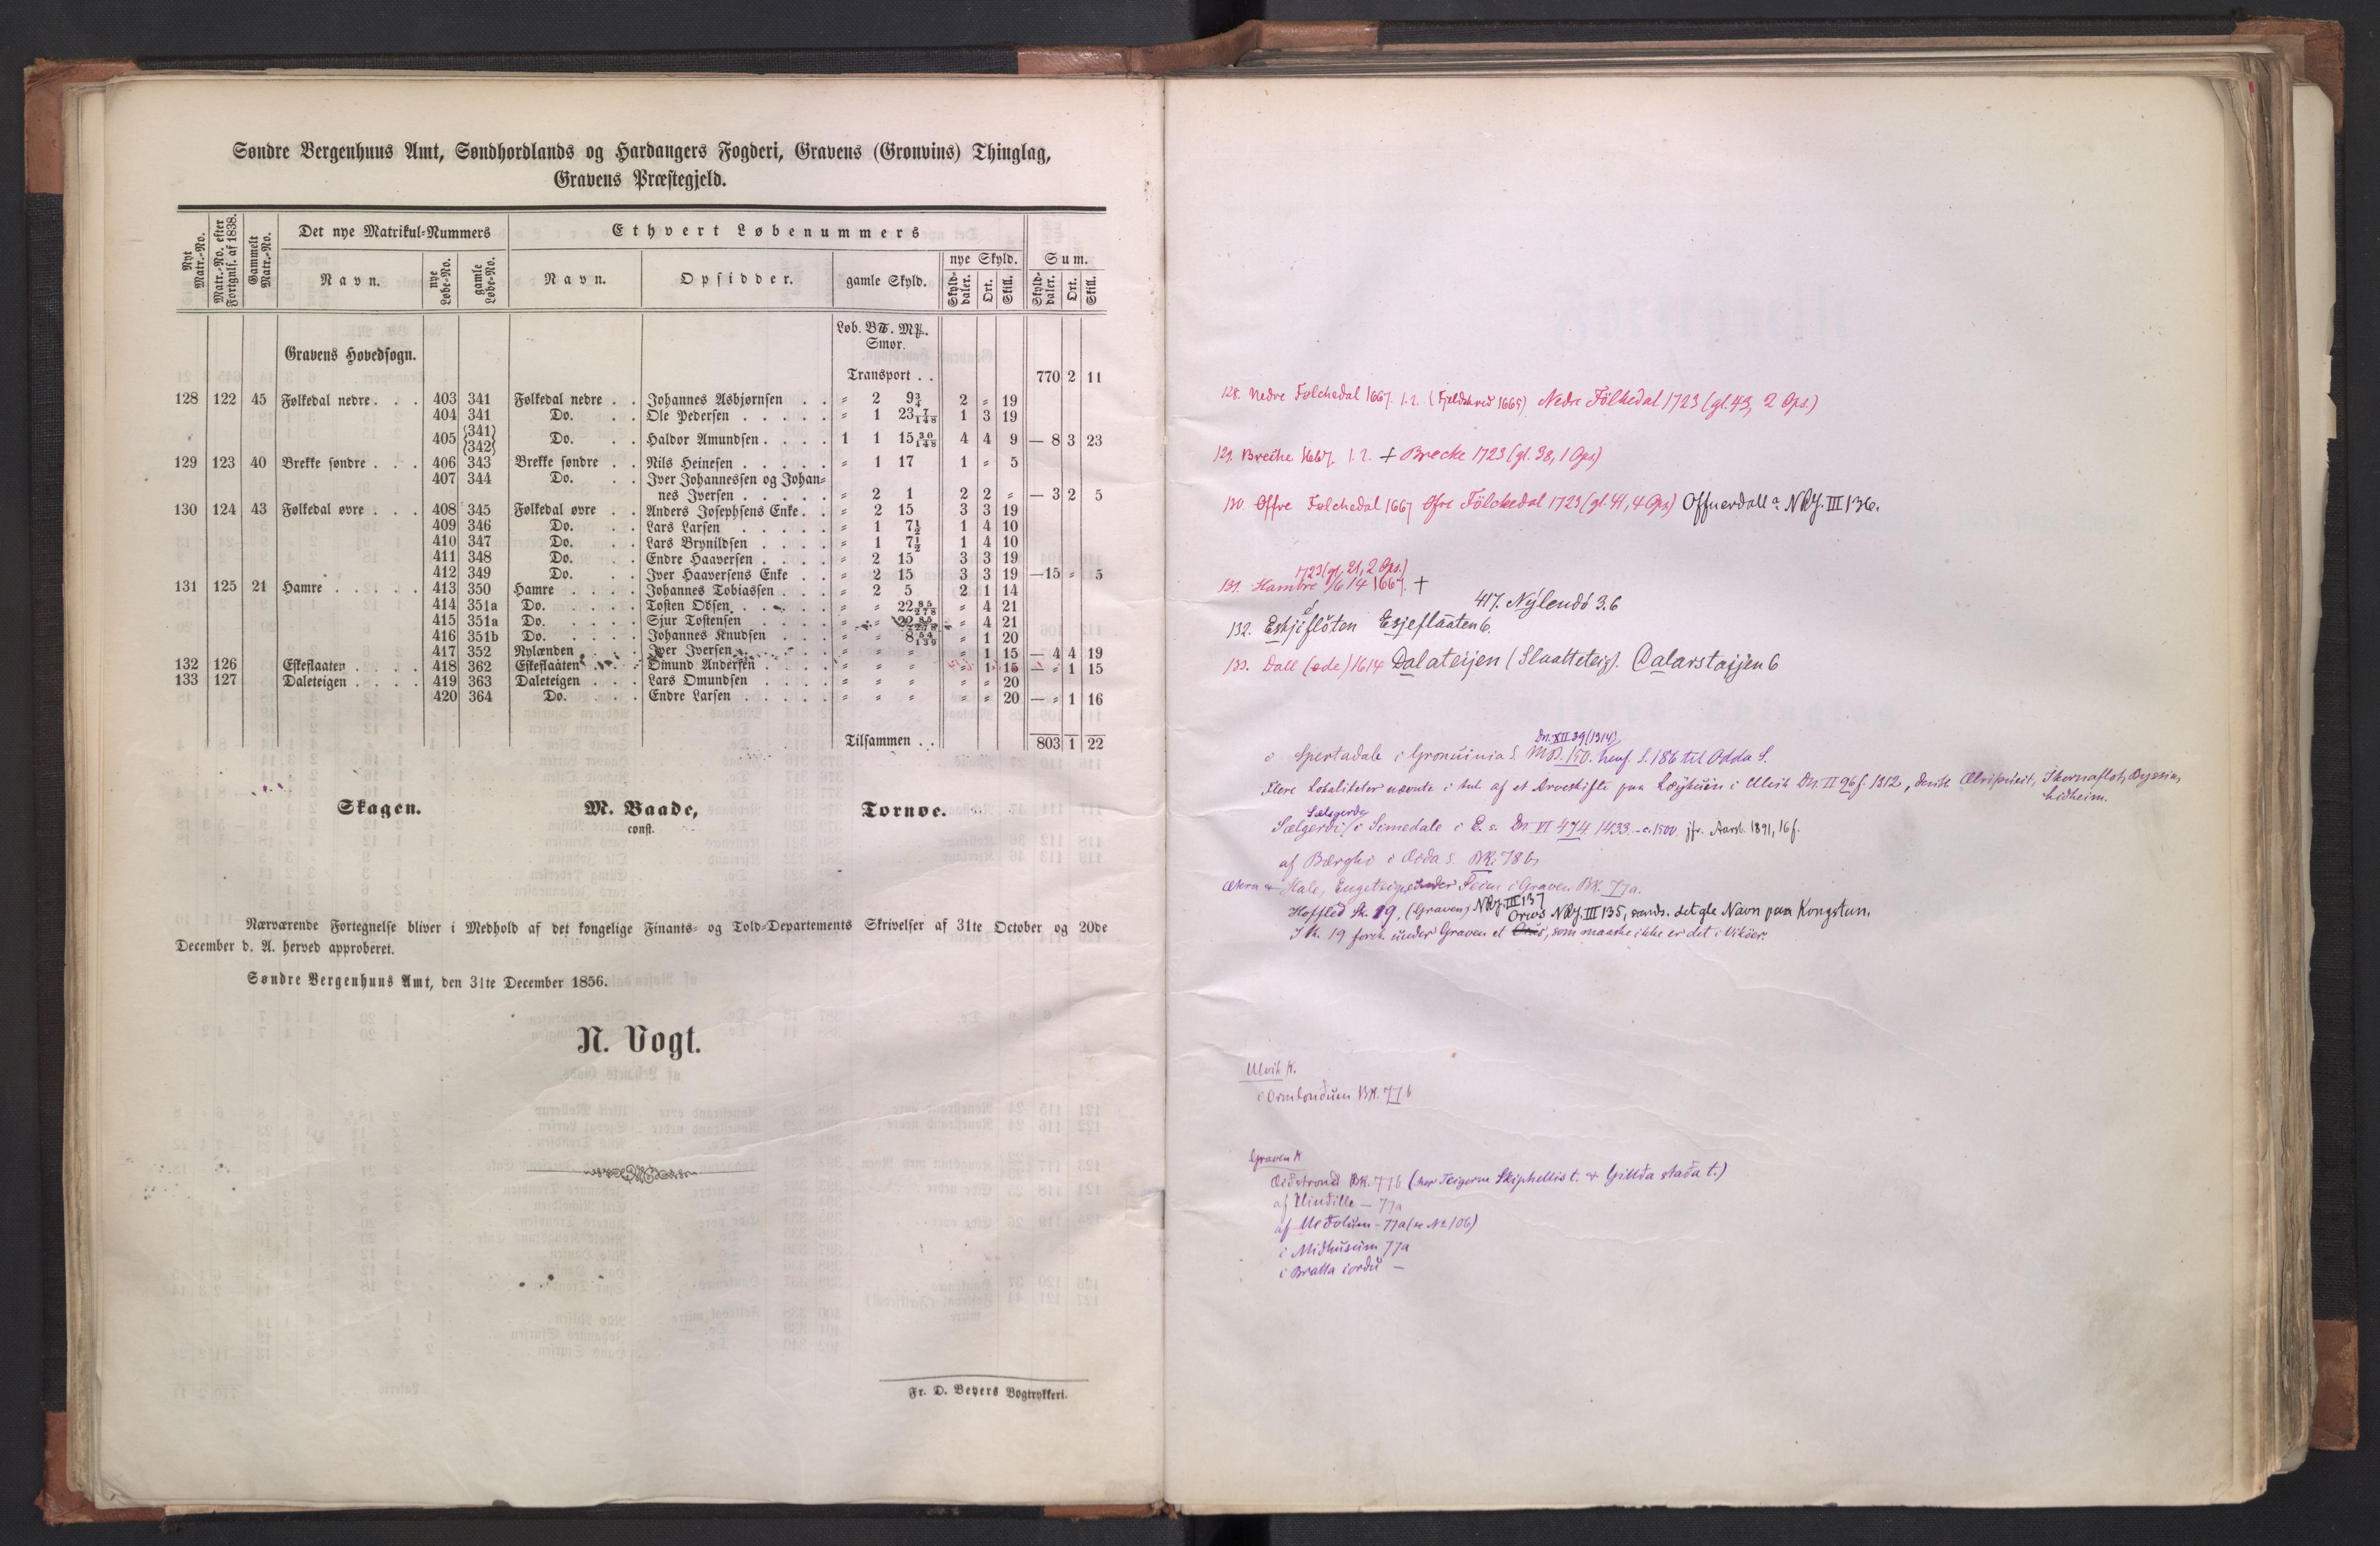 Søndre Bergenhuus Amt, Søndhordlands og Hardangers Fogderi, Gravens (Gronvins) Thinglag,
Gravens Præstegjeld.
Nye Matr.-No. | Matr.-No. efter Fortgnls. af 1838. | Gammelt Matr.-No. | Det nye Matrikul-Nummers | Ethvert Løbenummers | Sum.
Navn. | nye Løbe-No. | gamle Løbe-No. | Navn. | Opsidder. | gamle Skyld. | nye Skyld. Skylddaler. Ort. Skill. | Skylddaler. Ort. Skill.
Løb. B℔. M℔.
Smør.
Gravens Hovedsogn.
Transport . . 770 2 11
128 122 45 Følkedal nedre . . . 403 341 Følkedal nedre . . Johannes Asbjørnsen . . = 2 9¾ 2 = 19
404 341 Do. . . Ole Pedersen . . . . . = 1 23 7/148 1 3 19
405 {341} {342} Do. . . Haldor Amundsen . . . . 1 1 15 30/148 4 4 9 — 8 3 23
129 123 40 Brekke søndre . . . 406 343 Brekke søndre . . Nils Heinesen . . . . . = 1 17 1 = 5
407 344 Do. . . Iver Johannessen og Johan-
nes Iversen . . . . . = 2 1 2 2 = — 3 2 5
130 124 43 Følkedal øvre . . . 408 345 Følkedal øvre . . Anders Josephsens Enke . . = 2 15 3 3 19
409 346 Do. . . Lars Larsen . . . . . = 1 7½ 1 4 10
410 347 Do. . . Lars Brynildsen . . . . = 1 7½ 1 4 10
411 348 Do. . . Endre Haaversen . . . . = 2 15 3 3 19
412 349 Do. . . Iver Haaversens Enke . . = 2 15 3 3 19 —15 = 5
131 125 21 Hamre . . . . . 413 350 Hamre . . . . Johannes Tobiassen . . . = 2 5 2 1 14
414 351a Do. . . . . Tosten Odsen . . . . . = = 22 85/278 = 4 21
415 351a Do. . . . . Sjur Tostensen . . . . = = 22 85/278 = 4 21
416 351b Do. . . . . Johannes Knudsen . . . = = 8 54/139 = 1 20
417 352 Nylænden . . . Iver Iversen . . . . . = = = = 1 15 — 4 4 19
132 126 Eskeflaaten . . . . 418 362 Eskeflaaten . . . Omund Andersen . . . . = = = = 1 15 — = 1 15
133 127 Daleteigen . . . . 419 363 Daleteigen . . . Lars Omundsen . . . . = = = = = 20
420 364 Do. . . . Endre Larsen . . . . . = = = = = 20 — = 1 16
Tilsammen . . 803 1 22
Skagen. M. Baade, Tornøe.
const.
Nærværende Fortegnelse bliver i Medhold af det kongelige Finants- og Told-Departements Skrivelser af 31te October og 20de
December d. A. herved approberet.
Søndre Bergenhuus Amt, den 31te December 1856.
N. Vogt.
Fr. D. Beyers Bogtrykkeri.
128. Nedre Folchedal 1667. 1.2. (Fjeldsbred 1665) Nedre Fölkedal 1723 (gl. 43, 2 Ops.)
129. Breche 1667. 1.2. + Brecke 1723 (gl. 38, 1 Ops)
130. Offre Folchedal 1667 Öfre Fölckedal 1723 (gl. 41, 4 Ops) Offuerdall a: NRJ. III 136.
1723 (gl. 21, 2 Ops.)
131. Hambre 1614 1667. +
417. Nylendo 3.6
132. Eskjiflöten Esjeflaaten 6.
133. Dall (øde) 1614 Dalateijen (Slaatteteig).
Dn. XII 39 (1314)
i Spertadale i Gronuinia S. 150. henf. S. 186 til Odda S.
Flere Lokaliteter nævnte i Anl. af et Arveskifte paa i Ulvik Dn. II 96 f. 1312,
Lidheim.
Sælsgerde
Sælgerdi i Simedale i E. s. Dn. VI 474 1433. - c. 1500. jfr. Aarsb. 1891, 16 f.
af Bærghi i s. BK. 78 b
Hale, Engeteige under i Graven BK. 77a.
St. 19, (Graven) NRJ. III 137
Orvis NRJ. III 135, sands. det gle Navn paa Kongstun.
I St. 19 forek. under Graven et Orvis, som maaske ikke er det i Vikör.
Ulvik K.
i BK. 77 b
Graven K
BK. 77 b (her Teigerne Skiphellis t. & Gillda stada t.)
af — 77a
af – 77a (se No 106)
i Midhusum 77a
i Bratta iordu —